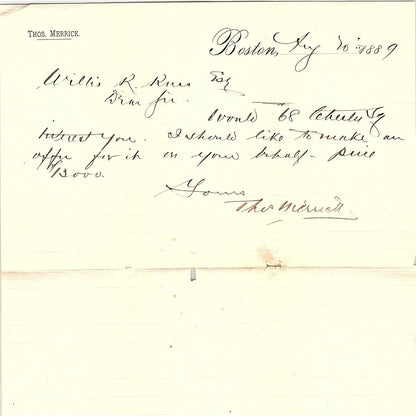 THOS. MERRICK.
Boston, Aug 20 1889
Willis R. Russ Esq
Dear Sir.
Would 68 Chester Sq
interest you. I should like to make an
offer for it on your behalf - price
$13000.
Yours
Thos Merrick